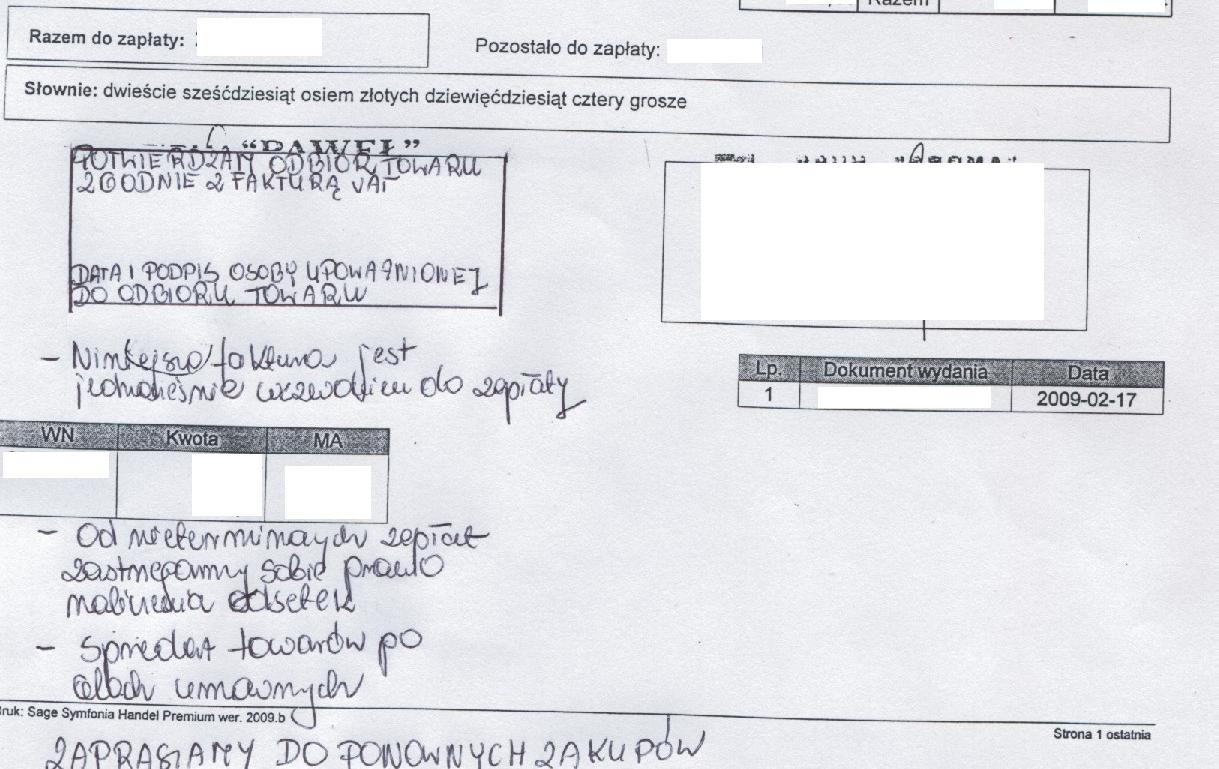 Razem
Razem do zapłaty:
Pozostało do zapłaty:
Słownie: dwieście sześćdziesiąt osiem złotych dziewięćdziesiąt cztery grosze
"PAWEŁ"
POTWIERDZAM ODBIÓR TOWARU
ZGODNIE Z FAKTURĄ VAT
DATA I PODPIS OSOBY UPOWAŻNIONEJ
DO ODBIORU TOWARU
- Niniejsza faktura jest
jednocześnie wezwaniem do zapłaty
Lp. Dokument wydania Data
1 2009-02-17
WN Kwota MA
- Od nieterminowych zapłat
zastrzegamy sobie prawo
naliczenia odsetek
- Sprzedaż towarów po
cenach umownych
druk: Sage Symfonia Handel Premium wer. 2009.b
Strona 1 ostatnia
ZAPRASZAMY DO PONOWNYCH ZAKUPÓW